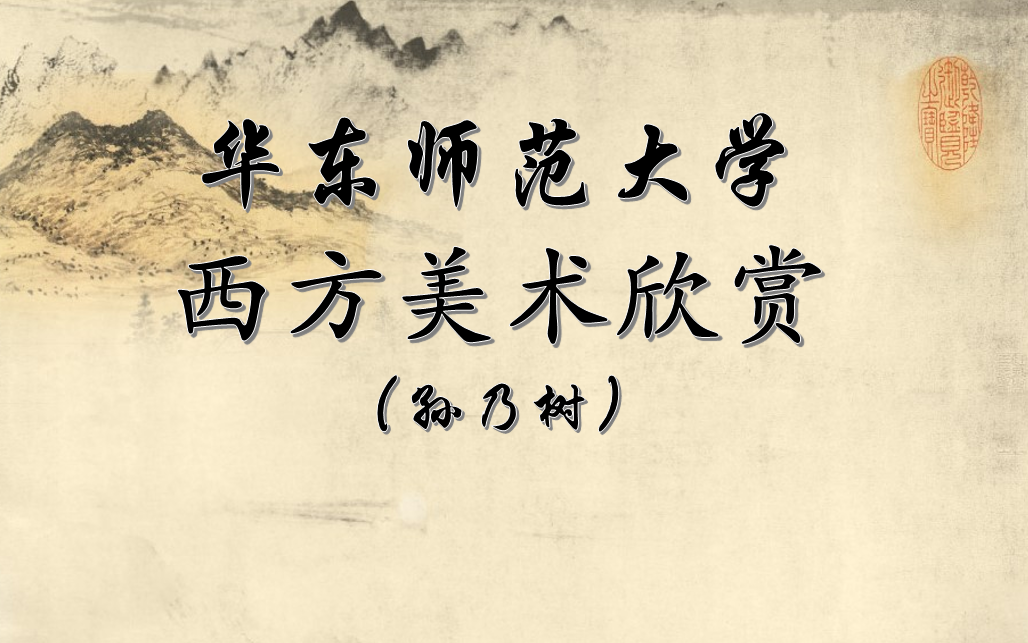 华东师范大学
西方美术欣赏
（孙乃树）